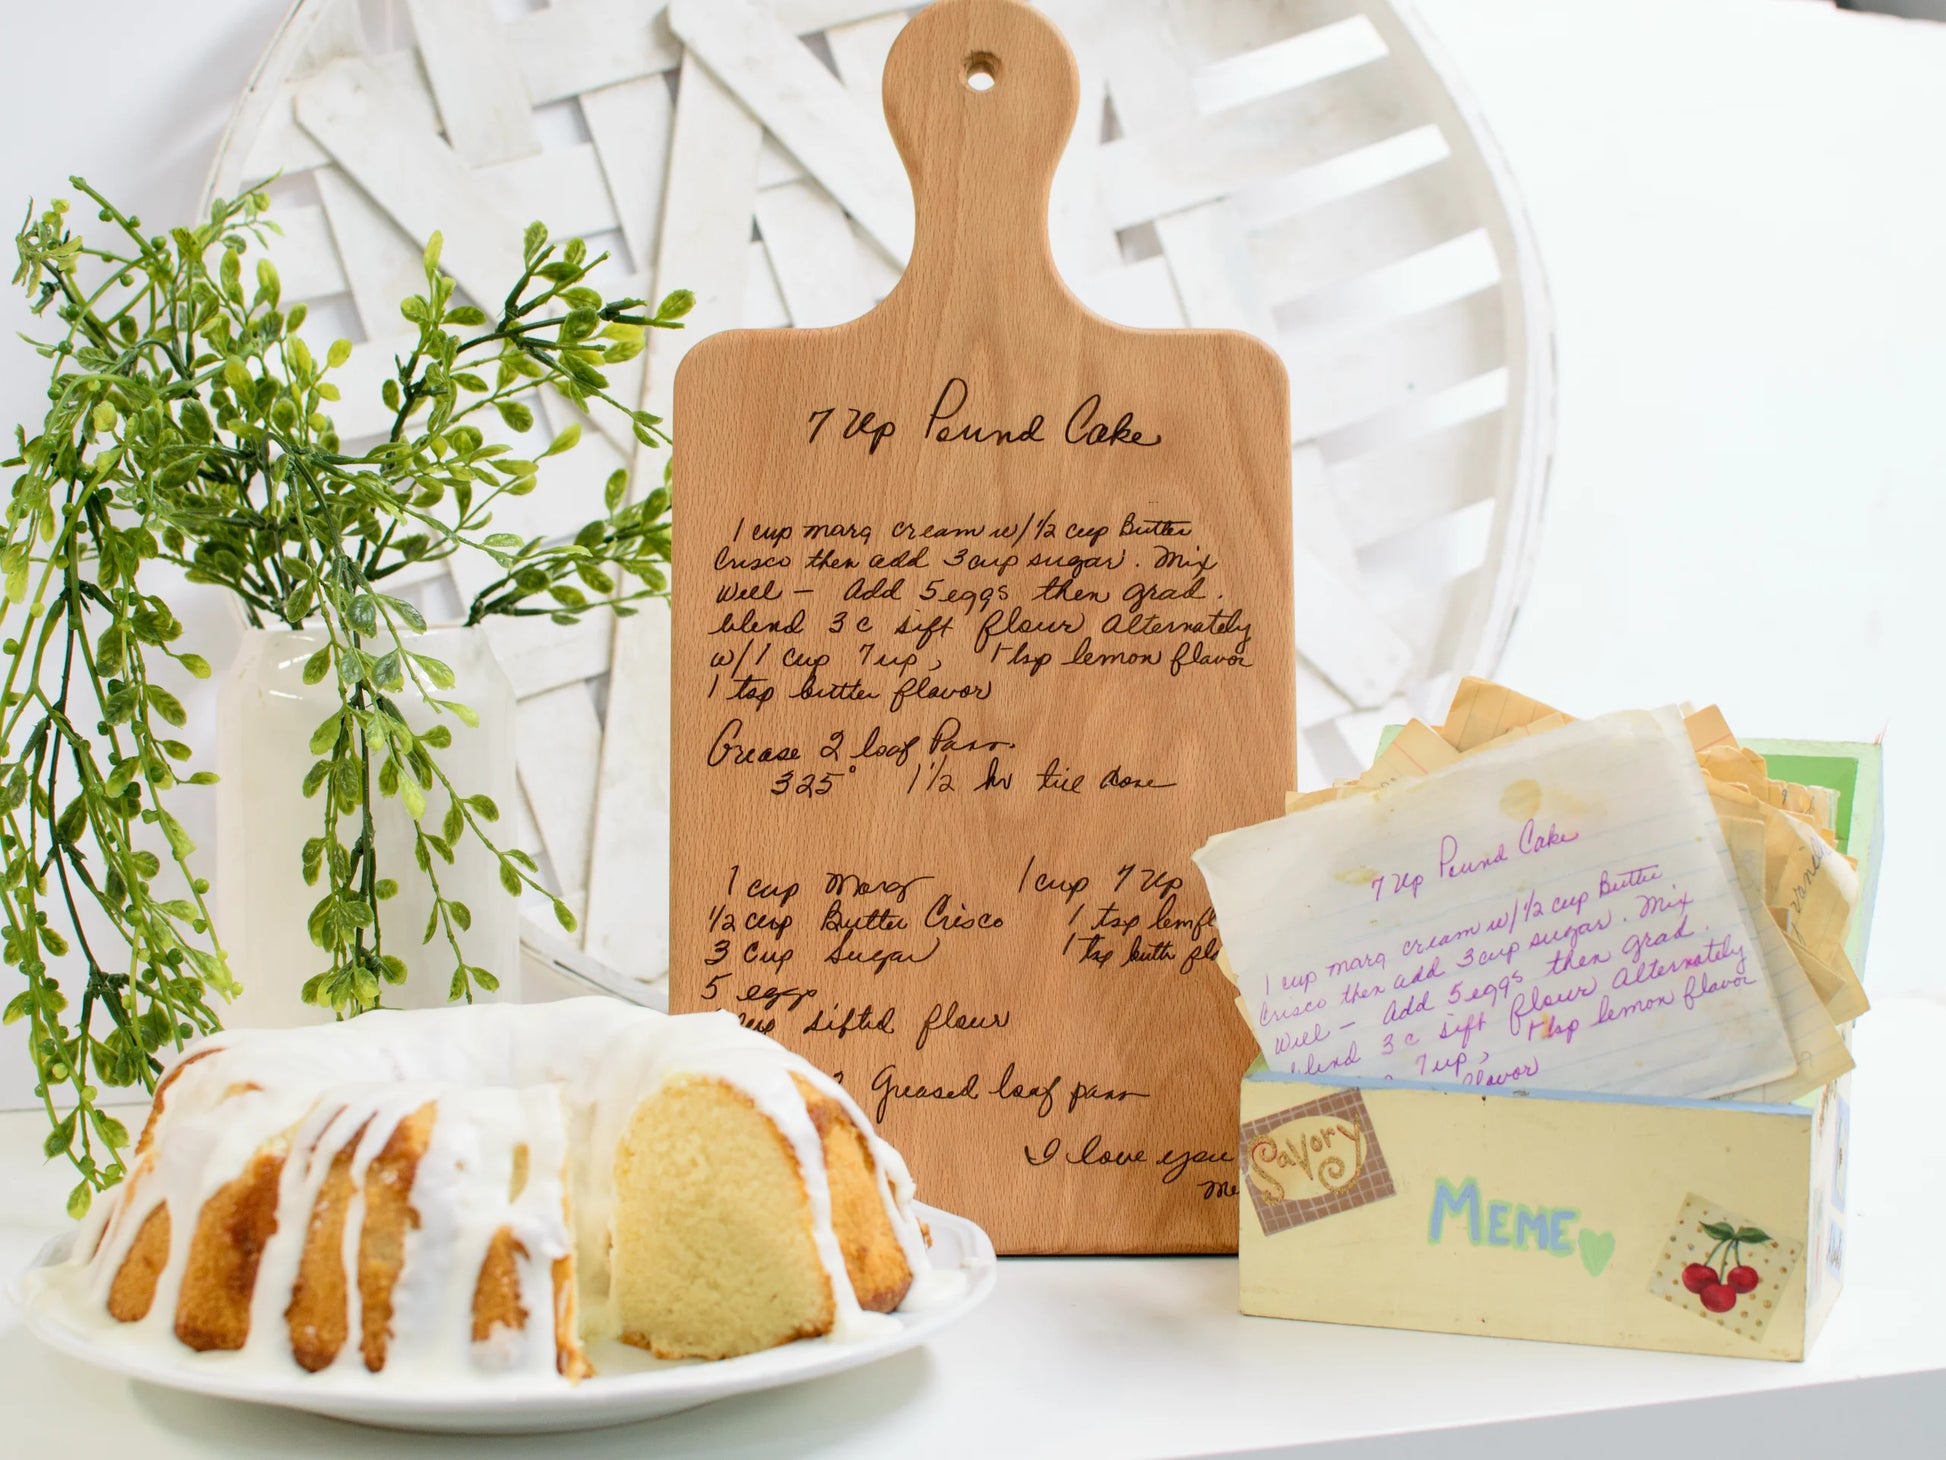 7 Up Pound Cake
1 cup marg cream w/ 1/2 cup Butter
Crisco then add 3 cup sugar. Mix
Well - Add 5 eggs then grad.
blend 3 c sift flour Alternately
w/ 1 cup 7 up, 1 tsp lemon flavor
1 tsp butter flavor
Grease 2 loaf Pans.
325° 1 1/2 hr till done
1 cup Marg 1 cup 7 Up
1/2 cup Butter Crisco 1 tsp lem fl
3 Cup Sugar 1 tsp butt fla
5 eggs
cup sifted flour
2 Greased loaf pans
I love you
Me
7 Up Pound Cake
1 cup marg cream w/ 1/2 cup Butter
Crisco then add 3 cup sugar. Mix
Well - Add 5 eggs then grad.
blend 3 c sift flour Alternately
7 up, 1 tsp lemon flavor
flavor
Savory
MEME